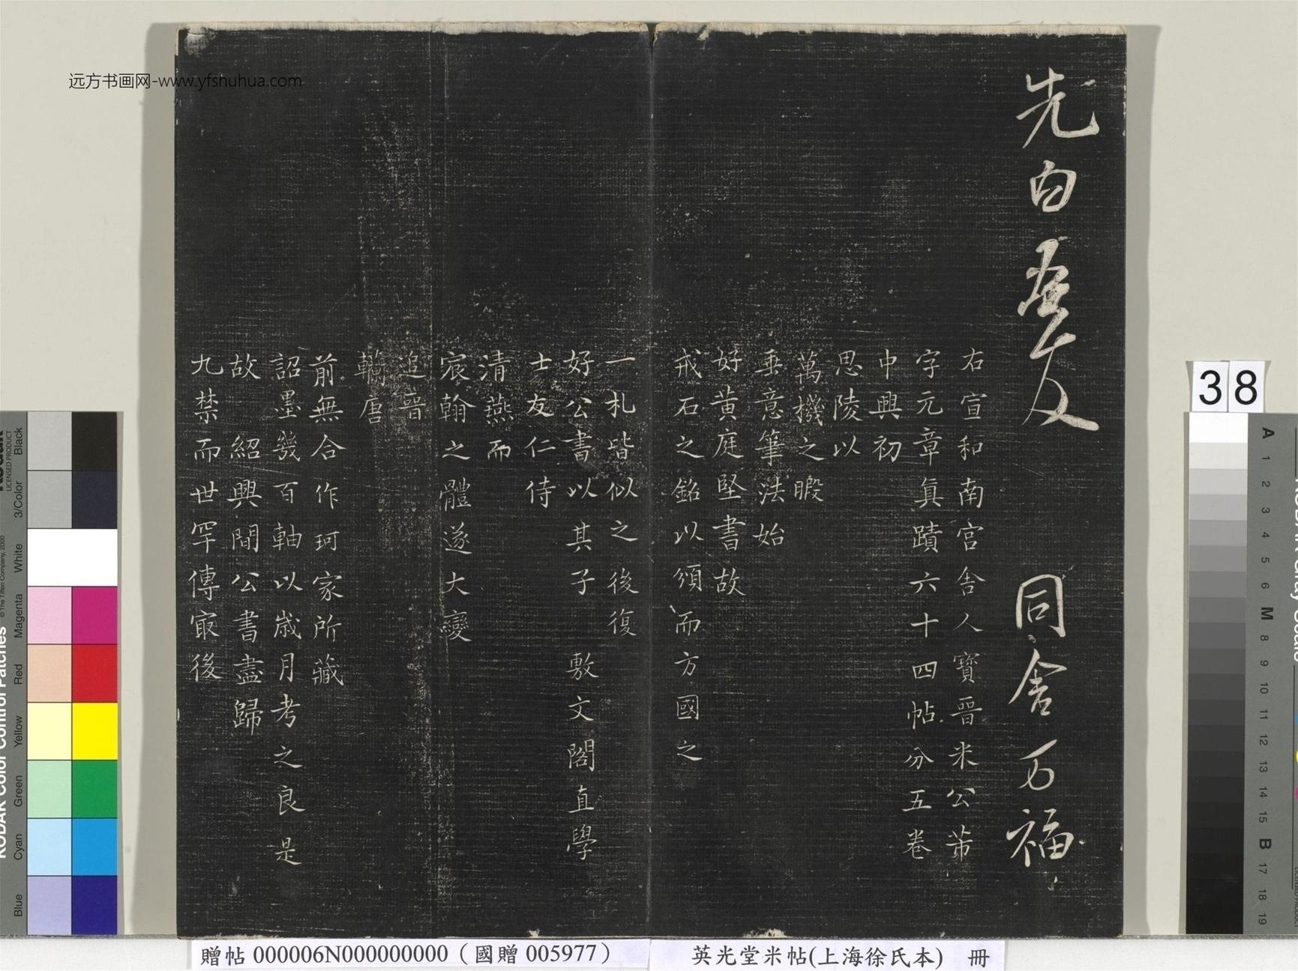 远方书画网-www.yfshuhua.com
先白
人
同舍万福
右宣和南宫舍人寶晉米公芾
字元章真蹟六十四帖分五卷
中興初
思陵以
萬機之暇
垂意筆法始
好黄庭堅書故
戒石之銘以頒而方國之
一札皆似之後復
好公書以其子 敷文閣直學
士友仁侍
清燕而
宸翰之體遂大變
追晉
轢唐
前無合作珂家所藏
詔墨幾百軸以歲月考之良是
故 紹興間公書盡歸
九禁而世罕傳冣後
贈帖 000006N000000000（國贈 005977）
英光堂米帖(上海徐氏本) 冊
38
KODAK Color Control Patches
Black
3/Color
White
Magenta
Red
Yellow
Green
Cyan
Blue
A 1 2 3 4 5 6 M 8 9 10 11 12 13 14 15 B 17 18 19